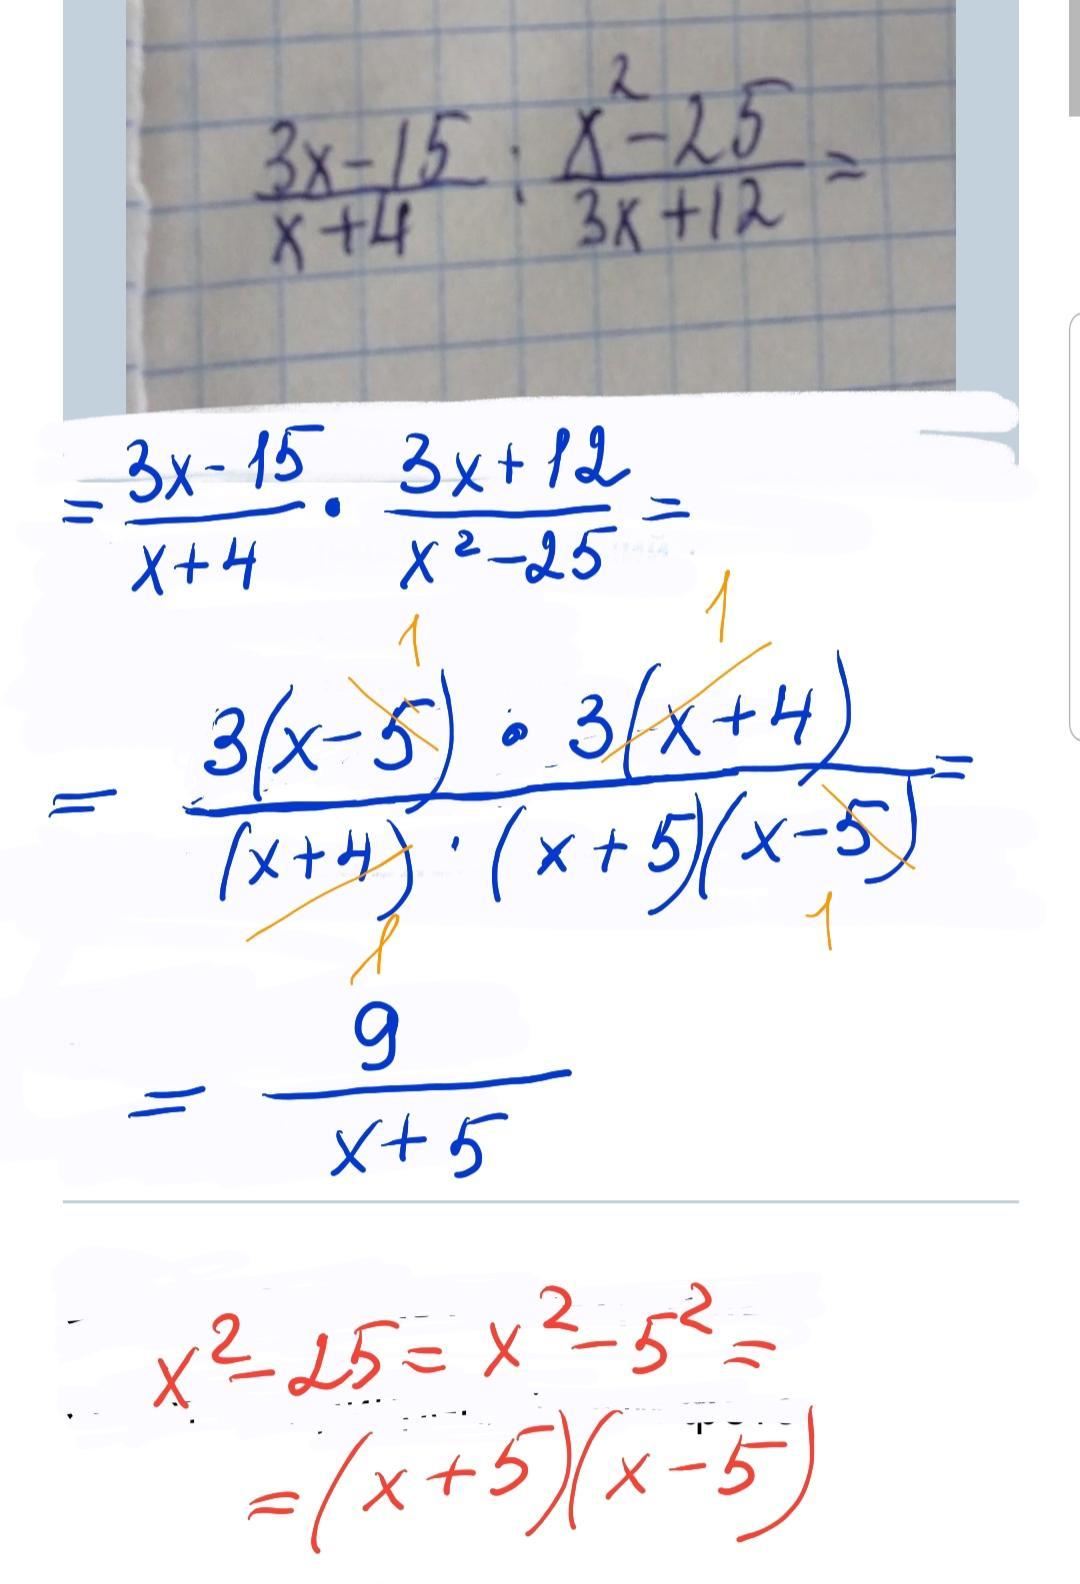 3x-15/x+4 : x²-25/3x+12 =
= 3x-15/x+4 · 3x+12/x²-25 =
1 1
= 3(x-5) · 3(x+4)/(x+4) · (x+5)(x-5) =
1 1
= 9/x+5
x²-25 = x²-5² =
= (x+5)(x-5)